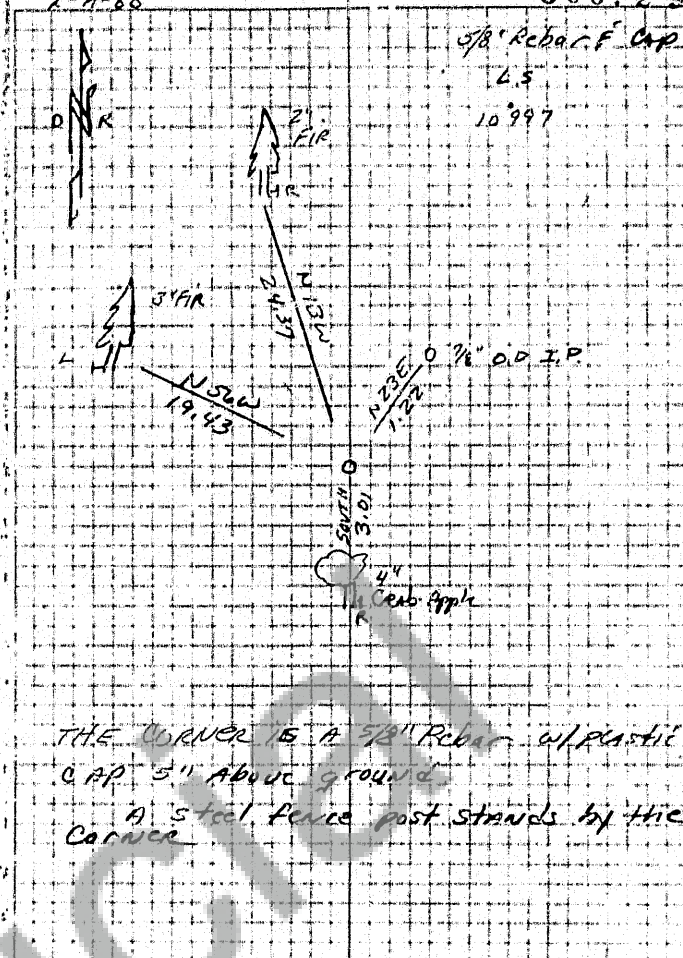 5/8" Rebar & Cap
L.S
10997
D R
2"
FIR
R
3" FIR
L
N13W
24.37
N56W
19.43
N23E
1.22
O 7/8" O.D I.P.
SOUTH
3.01
4"
Crab Apple
R
THE CORNER IS A 5/8" Rebar w/plastic
CAP 5" Above ground.
A steel fence post stands by the
Corner